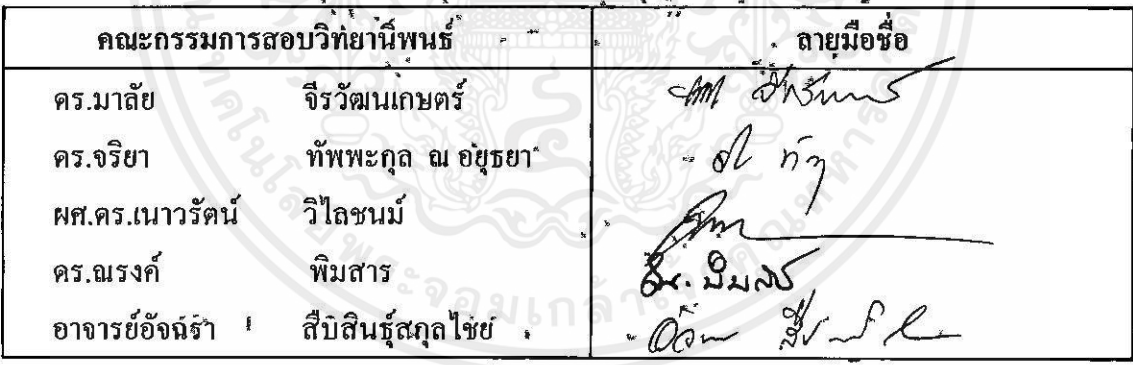 คณะกรรมการสอบวิทยานิพนธ์ ลายมือชื่อ
ดร.มาลัย จีรวัฒนเกษตร์
ดร.จริยา ทัพพะกุล ณ อยุธยา
ผศ.ดร.เนาวรัตน์ วิไลชนม์
ดร.ณรงค์ พิมสาร
อาจารย์อัจฉรา สืบสินธุ์สกุลไชย